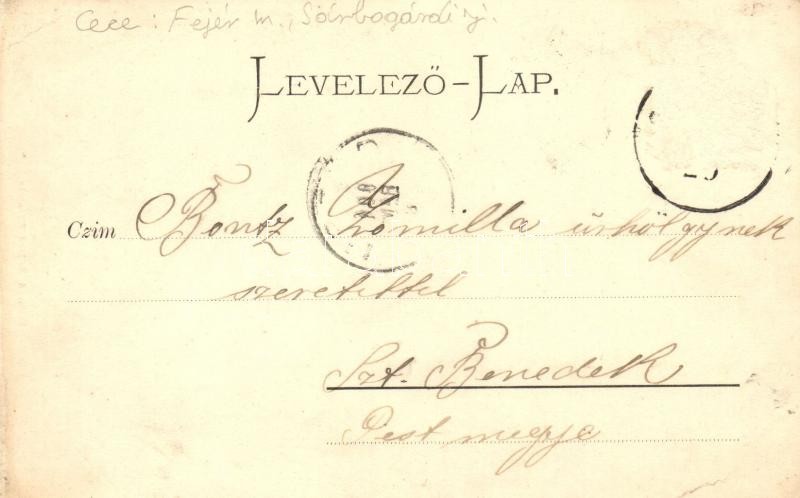 Cece: Fejér m., Sárbogárdi j.
LEVELEZŐ-LAP.
Czim Bontz Kromilla úrhölgynek
szeretettel
Szt. Benedek
Pest megye